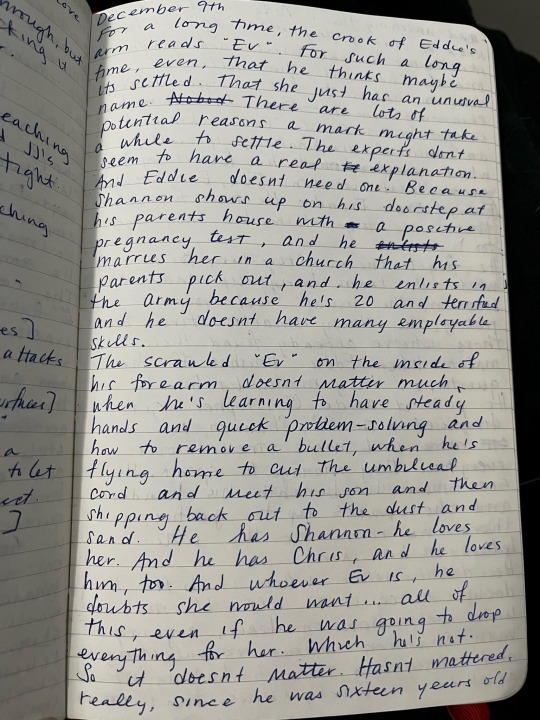 Love
through, but
cking it
r.
eaching
d JJ's
tight.
ching
es]
attacks
urfaces]
a
to let
ect.
]
December 9th
For a long time, the crook of Eddie's
arm reads "Ev". For such a long
time, even, that he thinks maybe
its settled. That she just has an unusual
name. Nobod There are lots of
potential reasons a mark might take
a while to settle. The experts dont
seem to have a real explanation.
And Eddie doesnt need one. Because
Shannon shows up on his doorstep at
his parents house with a positive
pregnancy test, and he enlists
marries her in a church that his
parents pick out, and he enlists in
the army because he's 20 and terrified
and he doesnt have many employable
skills.
The scrawled "Ev" on the inside of
his forearm doesnt matter much,
when he's learning to have steady
hands and quick problem-solving and
how to remove a bullet, when he's
flying home to cut the umbilical
cord and meet his son and then
shipping back out to the dust and
sand. He has Shannon - he loves
her. And he has Chris, and he loves
him, too. And whoever Ev is, he
doubts she would want... all of
this, even if he was going to drop
everything for her. Which he's not.
So it doesnt matter. Hasnt mattered,
really, since he was sixteen years old